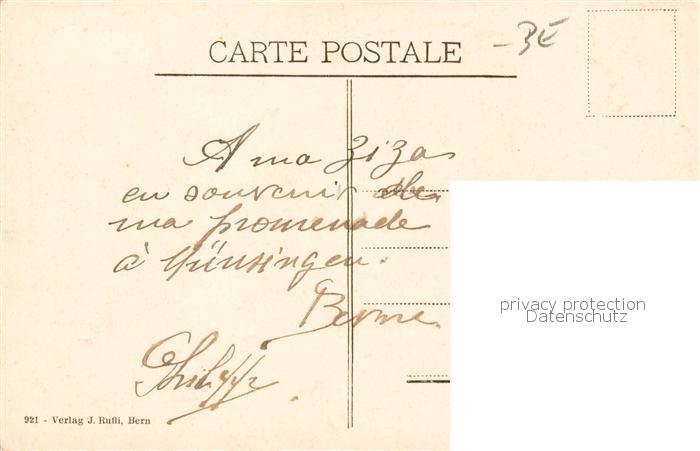 CARTE POSTALE
- BE
A ma Ziza
en souvenir de
ma promenade
à Münsingen.
Berne
Philipp
privacy protection
Datenschutz
921 - Verlag J. Rufli, Bern